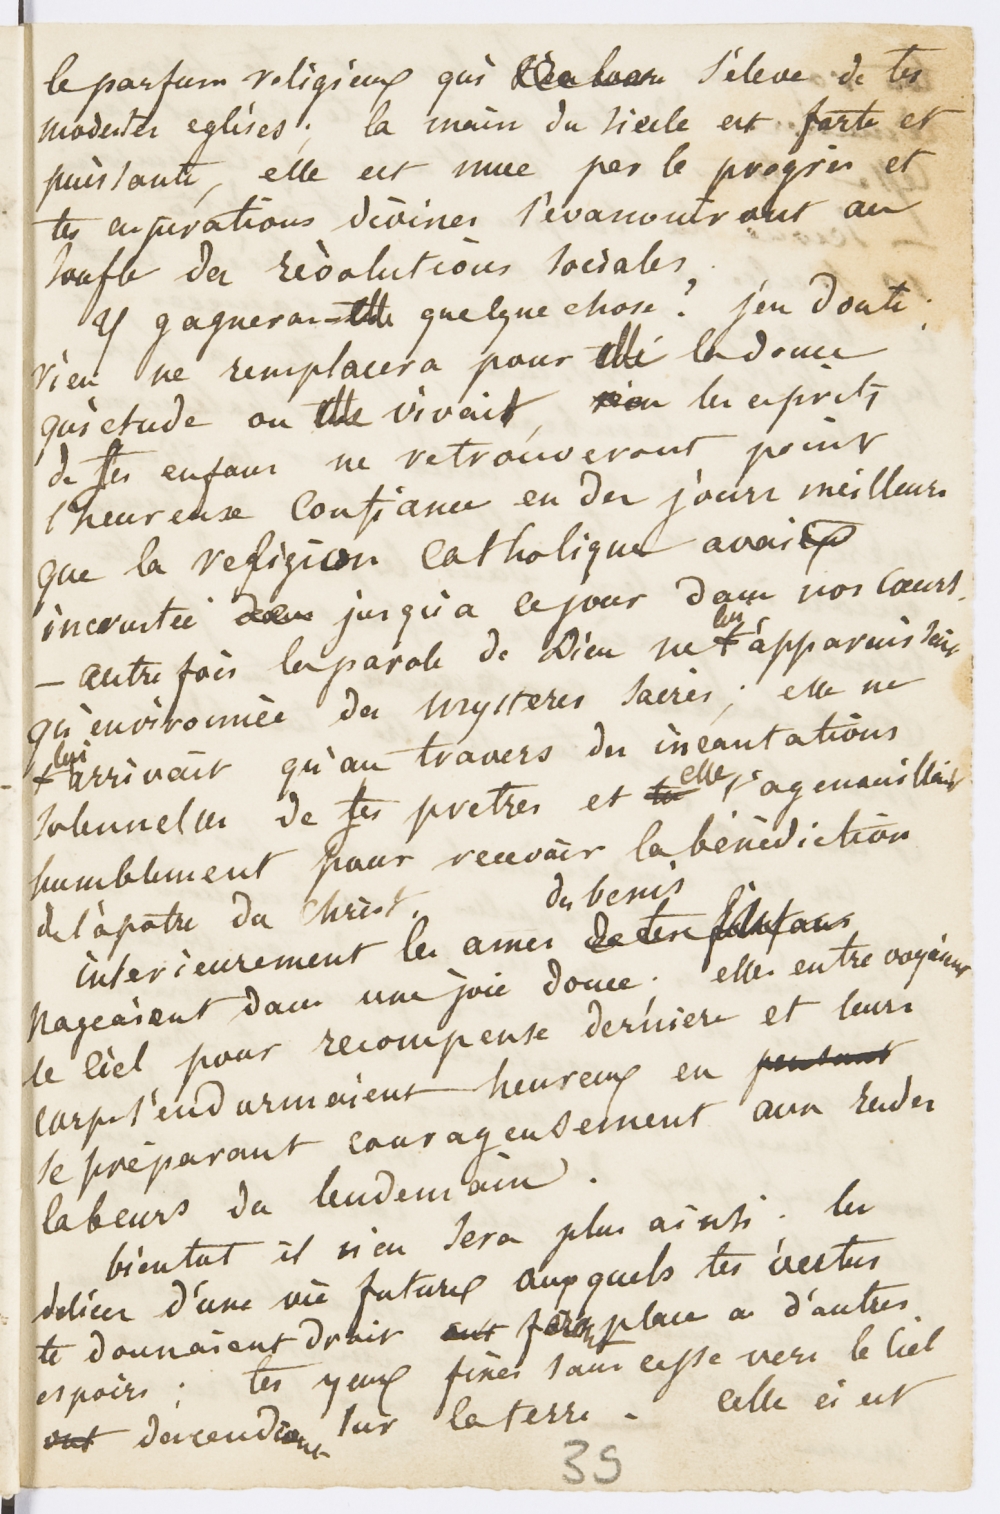 le parfum religieux qui s'eleve de tes
modestes eglises ; la main du siecle est forte et
puissante, elle est mue par le progrès et
tes aspirations divines s'evanouiront au
soufle des révolutions sociales.
Y gagnera-elle quelque chose ? j'en doute ;
rien ne remplacera pour elle la douce
quietude ou elle vivait, rien les esprits
de ses enfans ne retrouveront point
l'heureuse confiance en des jours meilleurs
que la religion catholique avait
incrustée dans jusqu'a ce jour dans nos coeurs.
— autre fois la parole de Dieu ne t lui apparaissait
qu'environnée des mysteres sacrés ; elle ne
t lui arrivait qu'au travers des incantations
solennelles de ses pretres et tu elle s'agenouillait
humblement pour recevoir la bénédiction
de l'apotre du Christ.
interieurement les ames de tes enfans des benis
nageaient dans une joie douce. elles entre voyaient
le Ciel pour recompense derniere et leurs
corps s'endormaient heureux en pensant
se préparant courageusement aux rudes
labeurs du lendemain.
bientot il n'en sera plus ainsi. les
delices d'une vie future auxquels tes vertus
te donnaient droit ont feront place a d'autres
espoirs ; tes yeux fixés sans cesse vers le Ciel
ont descendront sur la terre. Celle ci est
39